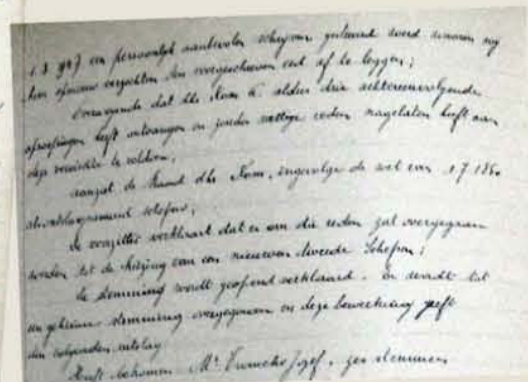 1.3.947 en persoonlijk aanbevolen schrijven gestuurd werd waarin wij
hem opnieuw verzochten den voorgeschreven eed af te leggen;
Overwegende dat dhr. Kom K. aldus drie achtereenvolgende
oproepingen heeft ontvangen en zonder wettige reden nagelaten heeft aan
deze vereischte te voldoen,
aanziet de Raad dhr Kom, ingevolge de wet van 1.7.1860
als ontslagnemend schepen;
De voorzitter verklaart dat er om die reden zal overgegaan
worden tot de kiezing van een nieuwen tweede Schepen;
de stemming wordt geopend verklaard. Er wordt tot
een geheime stemming overgegaan en deze bewerking geeft
den volgenden uitslag
Heeft bekomen Mr Jozef. zes stemmen